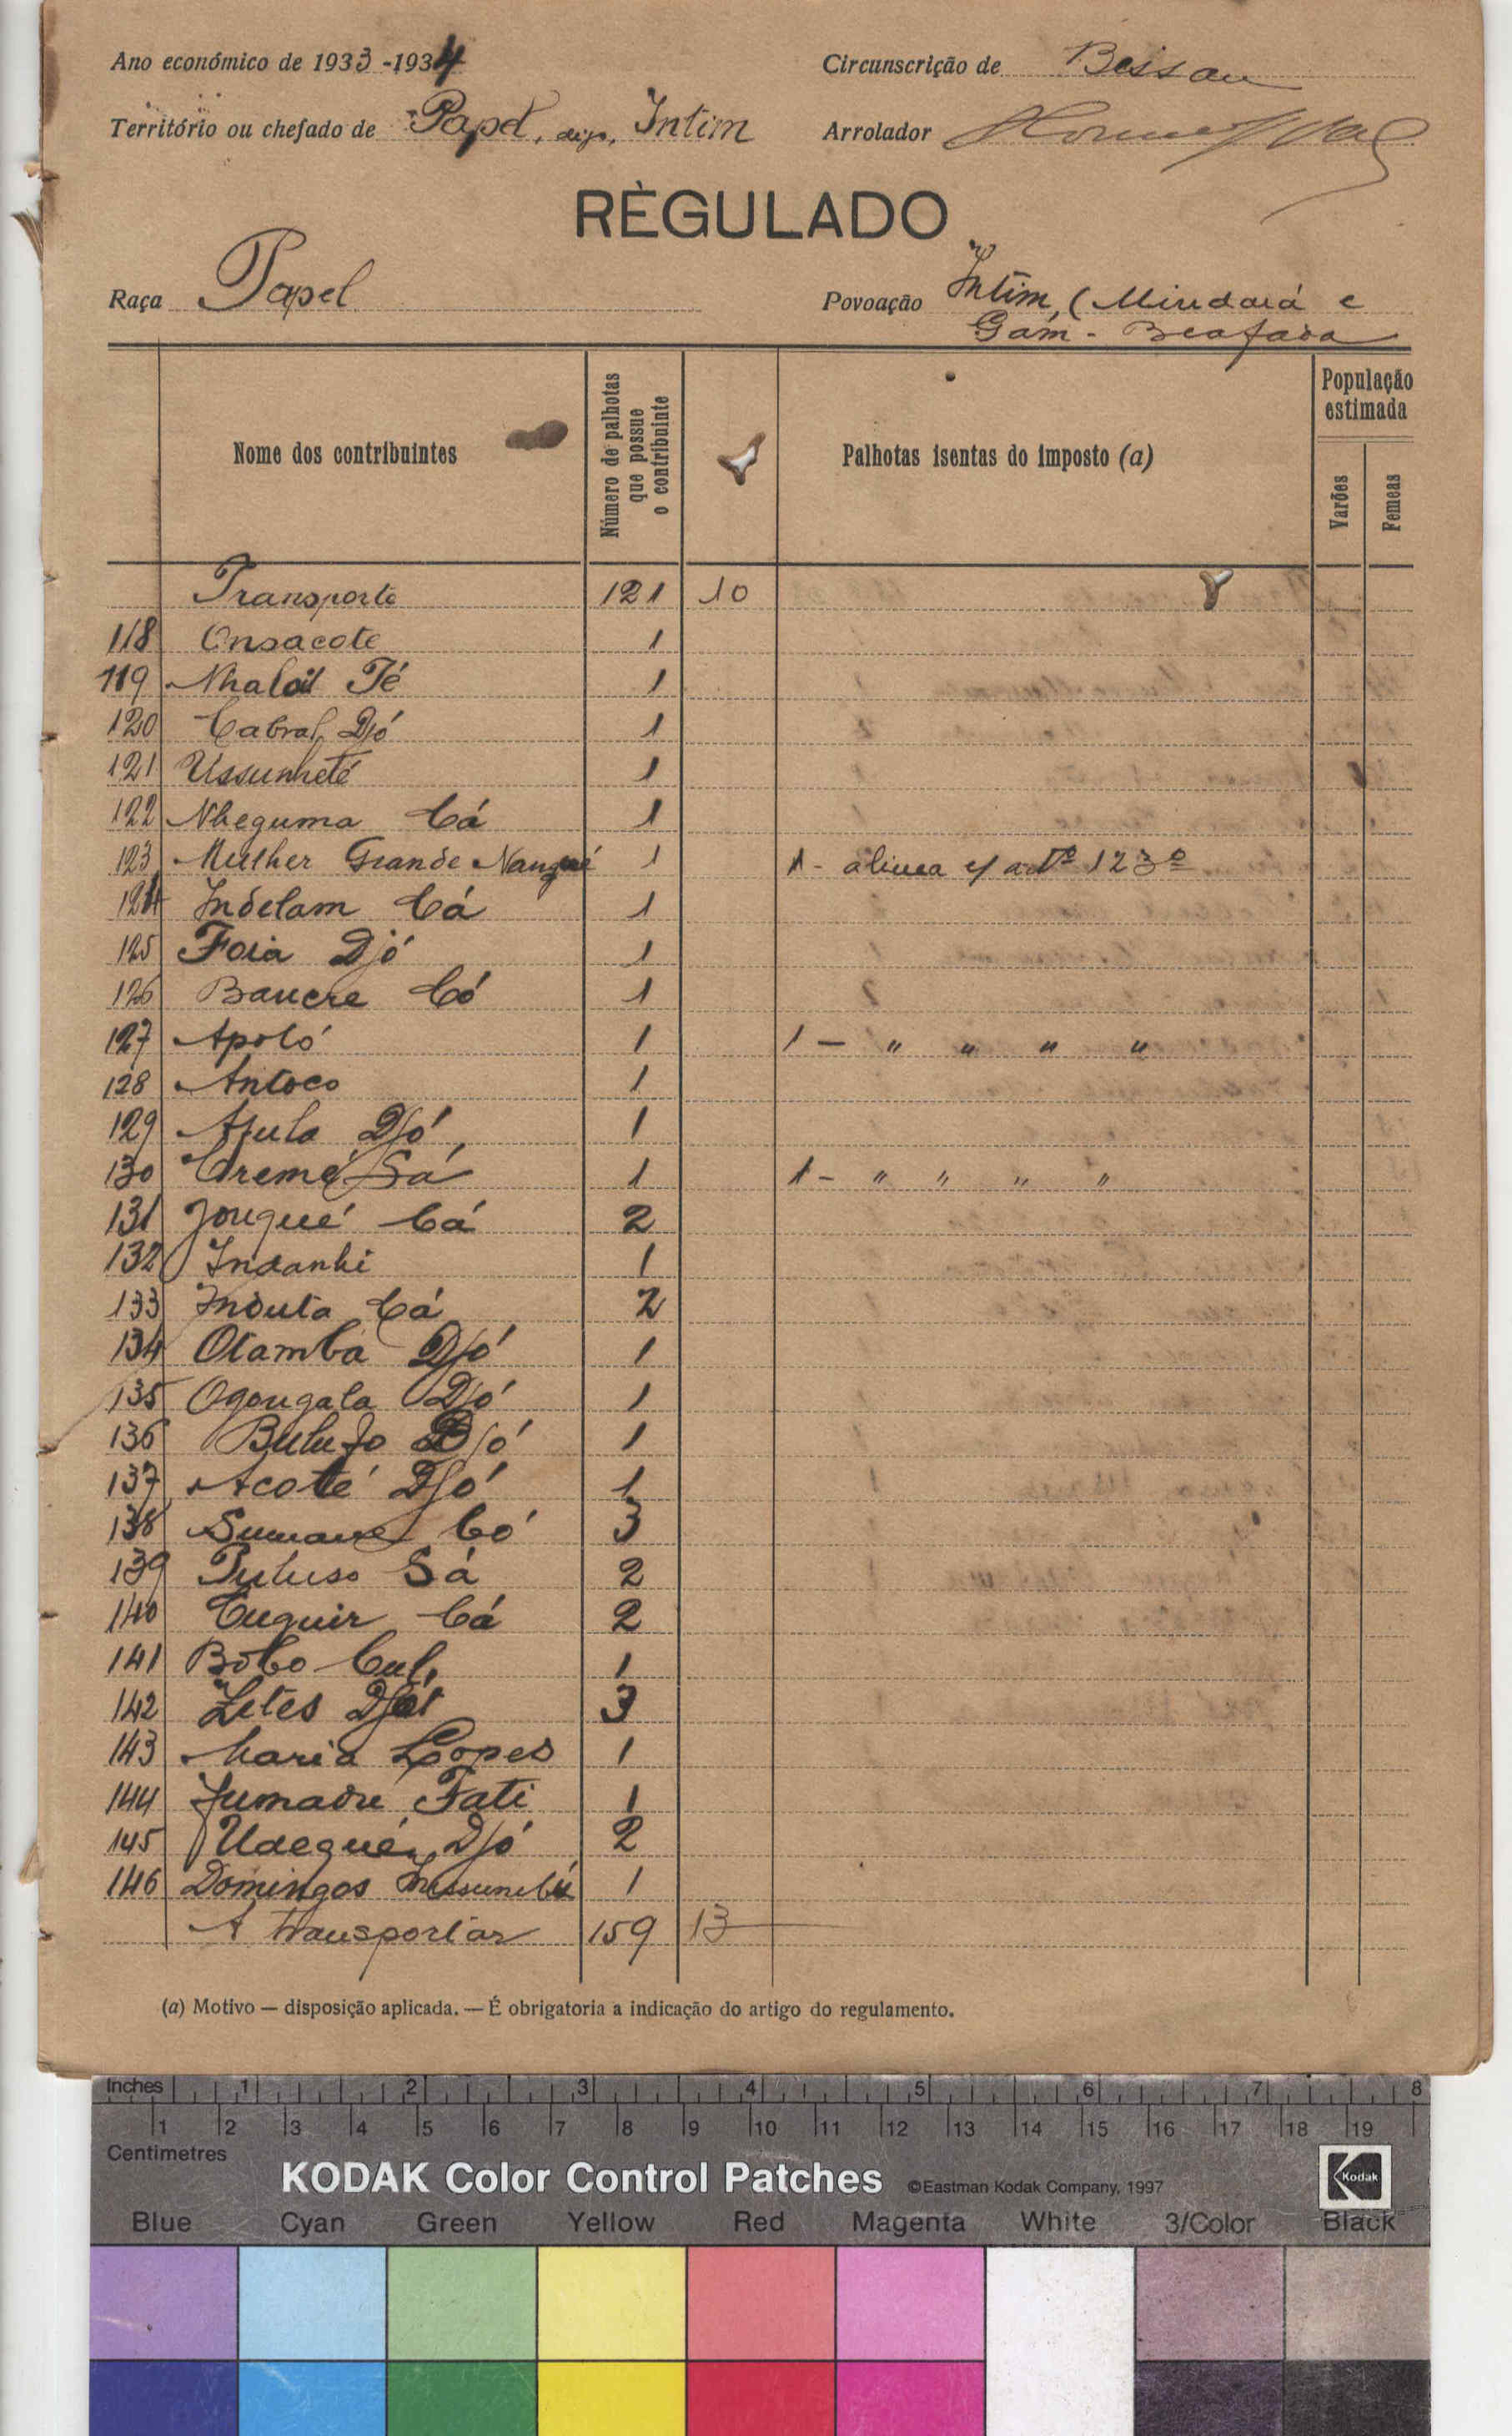 Ano económico de 1933-1934
Circunscrição de Bissau
Território ou chefado de Papel, Intim
Arrolador
RÈGULADO
Raça Papel
Povoação Intim, (Mindará e
Gám-Beafada
Nome dos contribuintes
Número de palhotas que possue o contribuinte
Palhotas isentas do imposto (a)
População estimada
Varões
Femeas
Transporte 121 10
118 Onsacote 1
119 Nhaloi Té 1
120 Cabral Djó 1
121 Ussunheté 1
122 Nheguma Cá 1
123 Mulher Grande Nanqué 1 1- alinea art.º 123º
124 Indelam Cá 1
125 Foia Djó 1
126 Baucre Có 1
127 Apoló 1 1 — " " " "
128 Antoco 1
129 Apula Djó 1
130 Cremé Sá 1 1 - " " " "
131 Jouqué Cá 2
132 Indanhi 1
133 Induta Cá 2
134 Otamba Djó 1
135 Ogougala Djó 1
136 Bulufo Djó 1
137 Acoté Djó 1
138 Sumane Có 3
139 Puluso Sá 2
140 Tuguir Cá 2
141 Bobo Cul 1
142 Zetes 3
143 Maria Lopes 1
144 Jumadu Fati 1
145 Udequé Djó 2
146 Domingos 1
A transportar 159 13
(a) Motivo — disposição aplicada. — É obrigatoria a indicação do artigo do regulamento.
Inches 1 2 3 4 5 6 7 8
1 2 3 4 5 6 7 8 9 10 11 12 13 14 15 16 17 18 19
Centimetres
KODAK Color Control Patches ©Eastman Kodak Company, 1997 Kodak
Blue Cyan Green Yellow Red Magenta White 3/Color Black